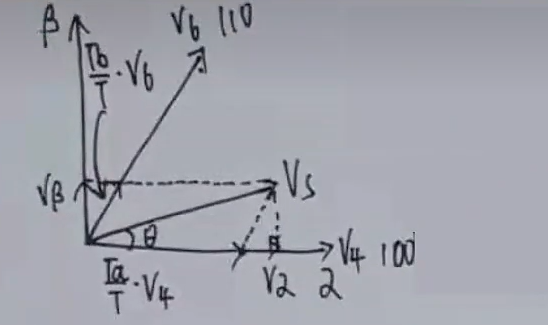 β
V6 110
Tb/T · V6
Vβ
Vs
θ
V4 100
Ta/T · V4
V2 2